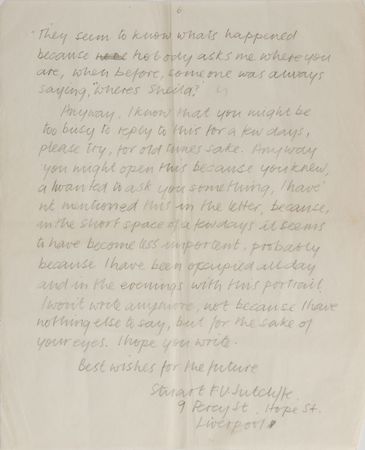 6
They seem to know whats happened
because nobody asks me where you
are, when before, someone was always
saying, "Wheres Sheila?"
Anyway, I know that you might be
too busy to reply to this for a few days,
please try, for old times sake. Anyway
you might open this because you knew,
I wanted to ask you something, I have
n't mentioned this in the letter, because,
in the short space of a few days it seems
to have become less important. probably
because I have been occupied all day
and in the evenings with this portrait
I won't write anymore, not because I have
nothing else to say, but for the sake of
your eyes. I hope you write.
Best wishes for the future
Stuart F.V. Sutcliffe.
9 Percy St. Hope St.
Liverpool